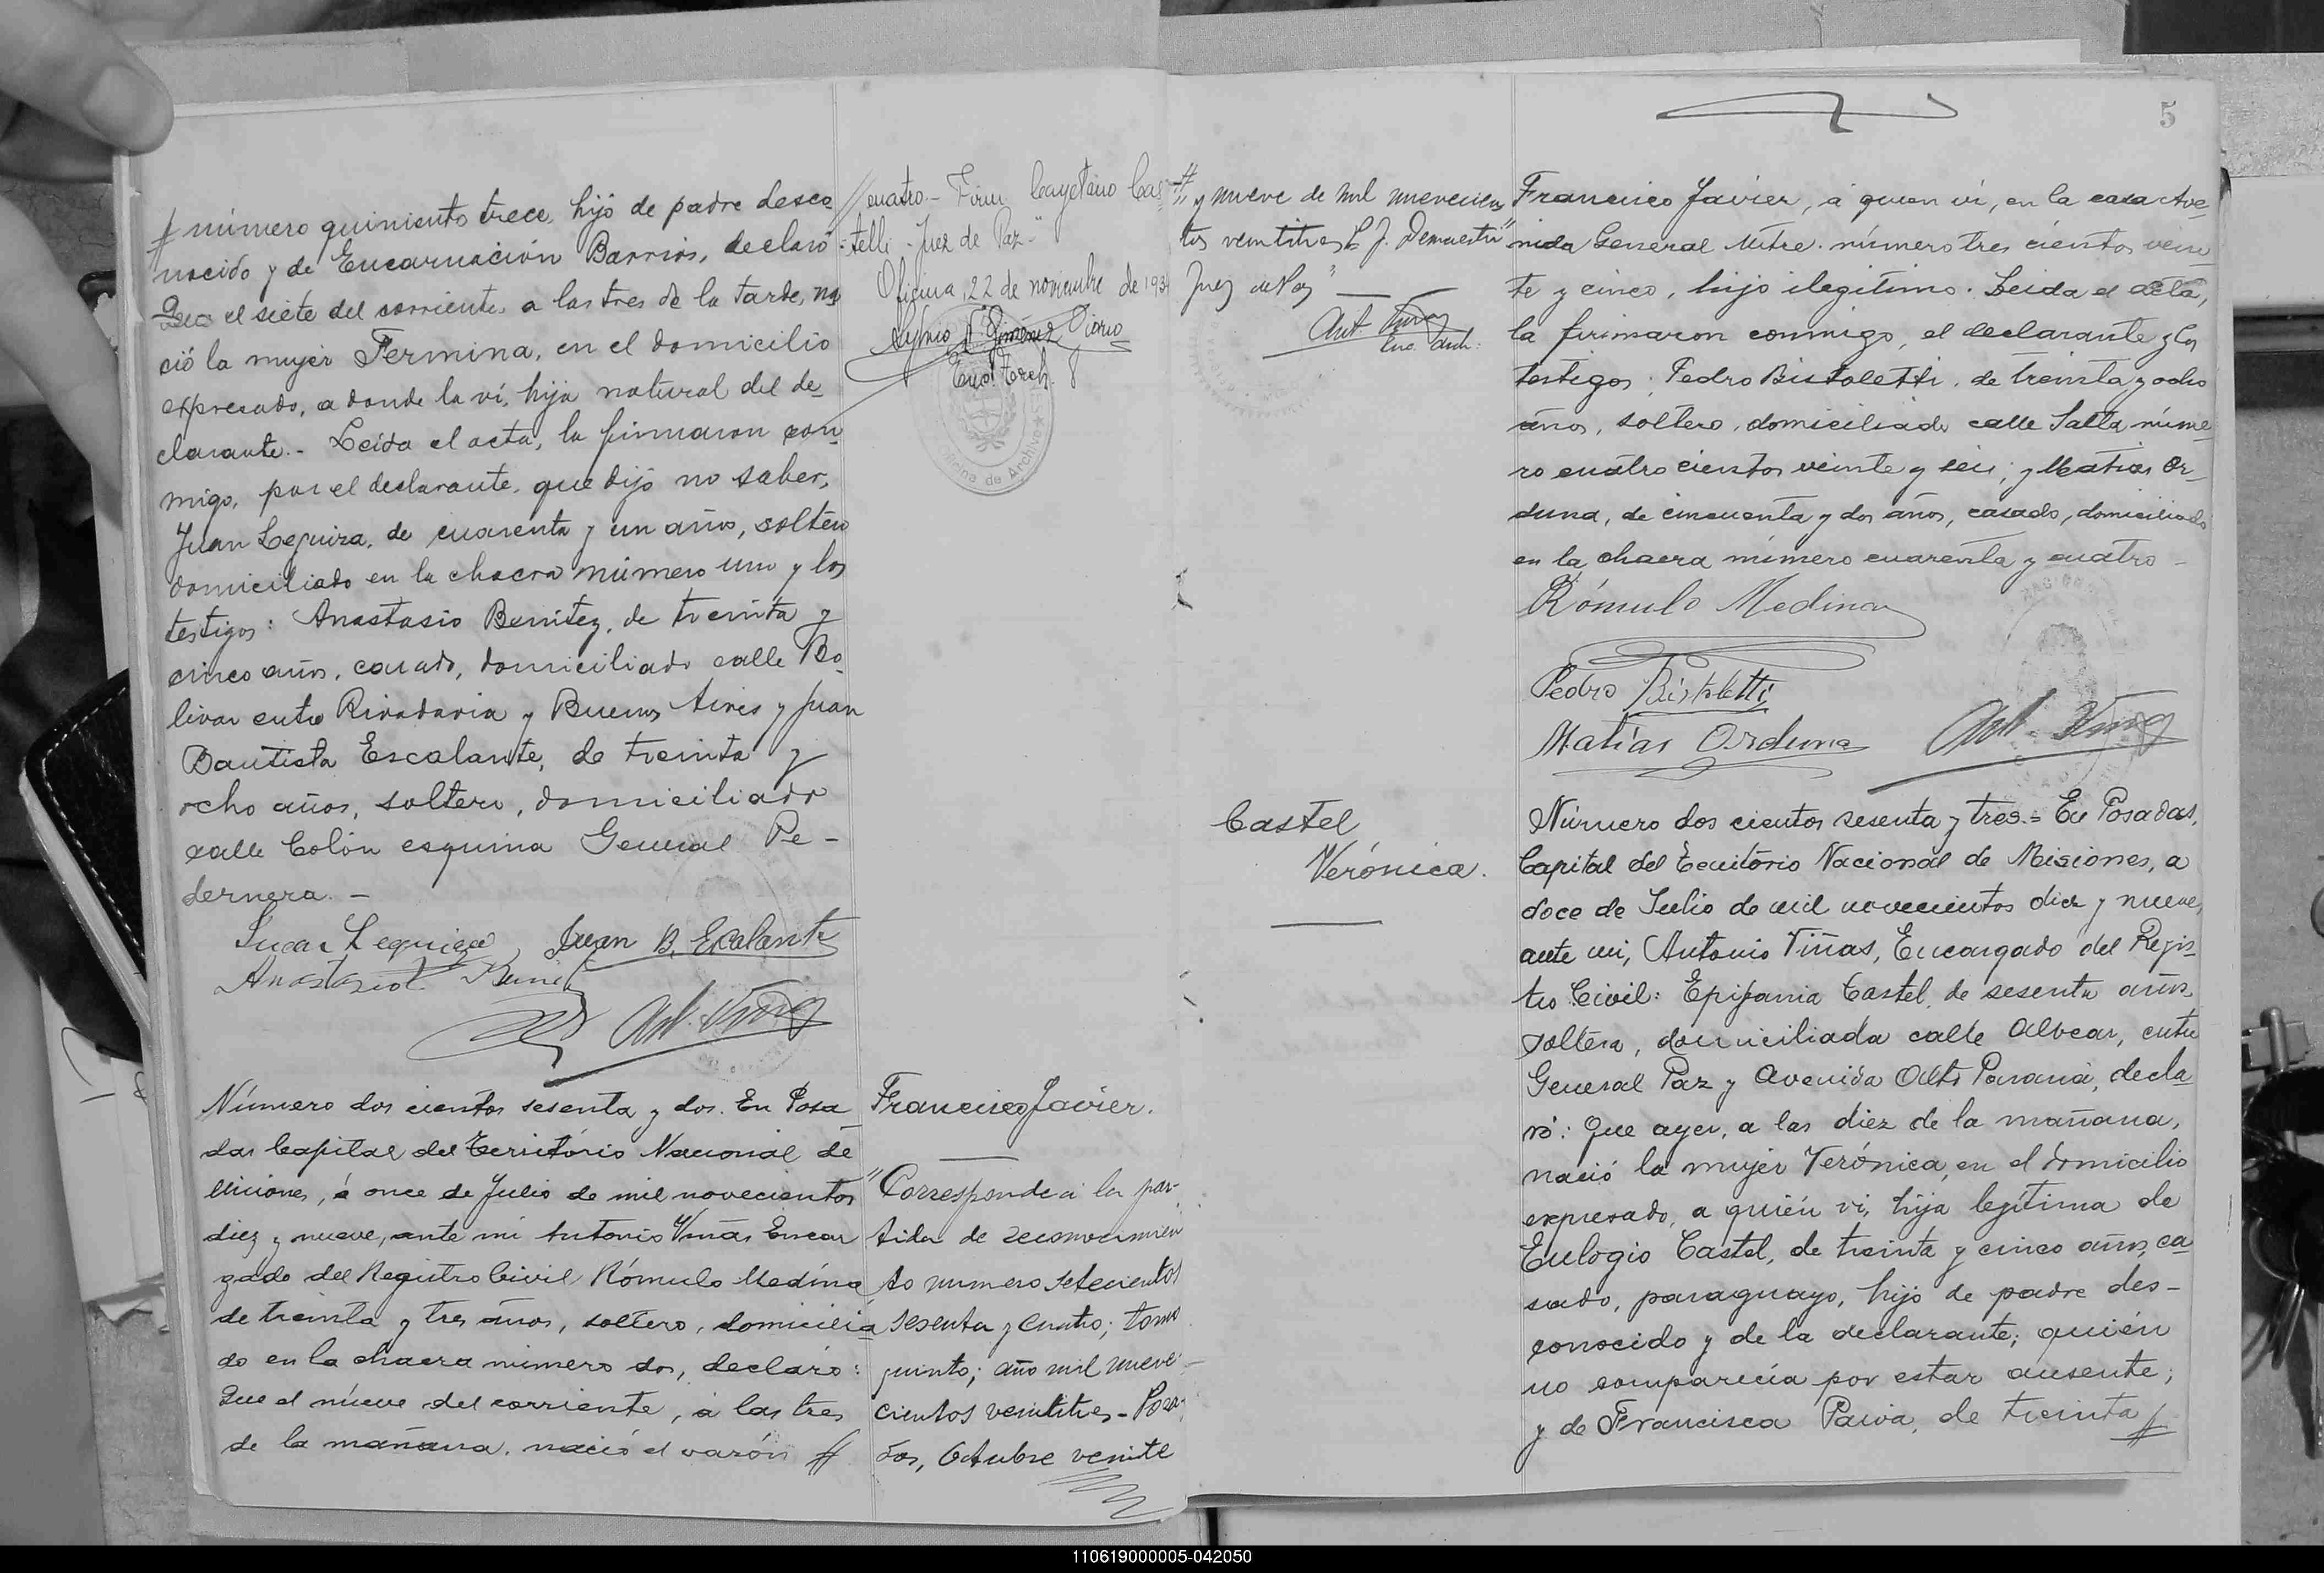 5
# número quiniento trece, hijo de padre desco-
nocido y de Encarnación Barrios, declaró:
Que el siete del corriente, a las tres de la tarde, na
ció la mujer Fermina, en el domicilio
expresado, a donde la ví, hija natural del de-
clarante.- Leída el acta, la firmaron con
migo, por el declarante, que dijo no saber,
Juan Leguiza, de cuarenta y un años, soltero
domiciliado en la chacra número uno y los
testigos: Anastasio Benitez, de treinta y
cinco años, casado, domiciliado calle Bo-
livar entre Rivadavia y Buenos Aires y Juan
Bautista Escalante, de treinta y
ocho años, soltero, domiciliado
calle Colón esquina General Pe-
dernera.-
Leguiza Juan B. Escalante
Ant. Viñas
Número dos cientos sesenta y dos. En Posa
das Capital del Territorio Nacional de
Misiones, á once de Julio de mil novecientos
diez y nueve, ante mi Antonio Viñas Encar
gado del Registro Civil Rómulo Medina
de treinta y tres años, soltero, domicilia
do en la chacra número dos, declaró:
Que el nueve del corriente, á las tres
de la mañana, nació el varón #
// cuatro.- Firm Cayetano Cas-
telli - Juez de Paz"
Oficina, 22 de noviembre de 193
Gimenez Osorio
Enc. Arch.
Oficina de Archivo
Francisco Javier.
"Corresponde a la par-
tida de reconocimien
to numero setecientos
sesenta y cuatro; tomo
quinto; año mil nueve-
cientos veintitres - Posa-
das, Octubre veinte
// y nueve de mil novecien
tos veintitres L. J. Demaestri"
Juez de Paz"
Ant. Viñas
Enc. Arch.
Francisco Javier, á quien ví, en la casa Ave-
nida General Mitre número tres cientos vein
te y cinco, hijo ilegitimo. Leida el acta,
la firmaron conmigo, el declarante y los
testigos: Pedro Bistoletti, de treinta y ocho
años, soltero, domiciliado calle Salta núme-
ro cuatro cientos veinte y seis; y Matias Or-
duna, de cincuenta y dos años, casado, domiciliado
en la chacra número cuarenta y cuatro -
Rómulo Medina
Pedro Bistoletti
Matías Orduna Ant. Viñas
Castel
Verónica.
Número dos cientos sesenta y tres.= En Posadas,
Capital del Territorio Nacional de Misiones, a
doce de Julio de mil novecientos diez y nueve,
ante mi, Antonio Viñas, Encargado del Regis-
tro Civil: Epifania Castel, de sesenta años
soltera, domiciliada calle Alvear, entre
General Paz y Avenida Alto Paraná, decla
ró: Que ayer, a las diez de la mañana,
nació la mujer Verónica, en el domicilio
expresado, a quién ví, hija legítima de
Eulogio Castel, de treinta y cinco años, ca
sado, paraguayo, hijo de padre des-
conocido y de la declarante; quién
no comparecía por estar ausente;
y de Francisca Paiva, de treinta #
110619000005-042050